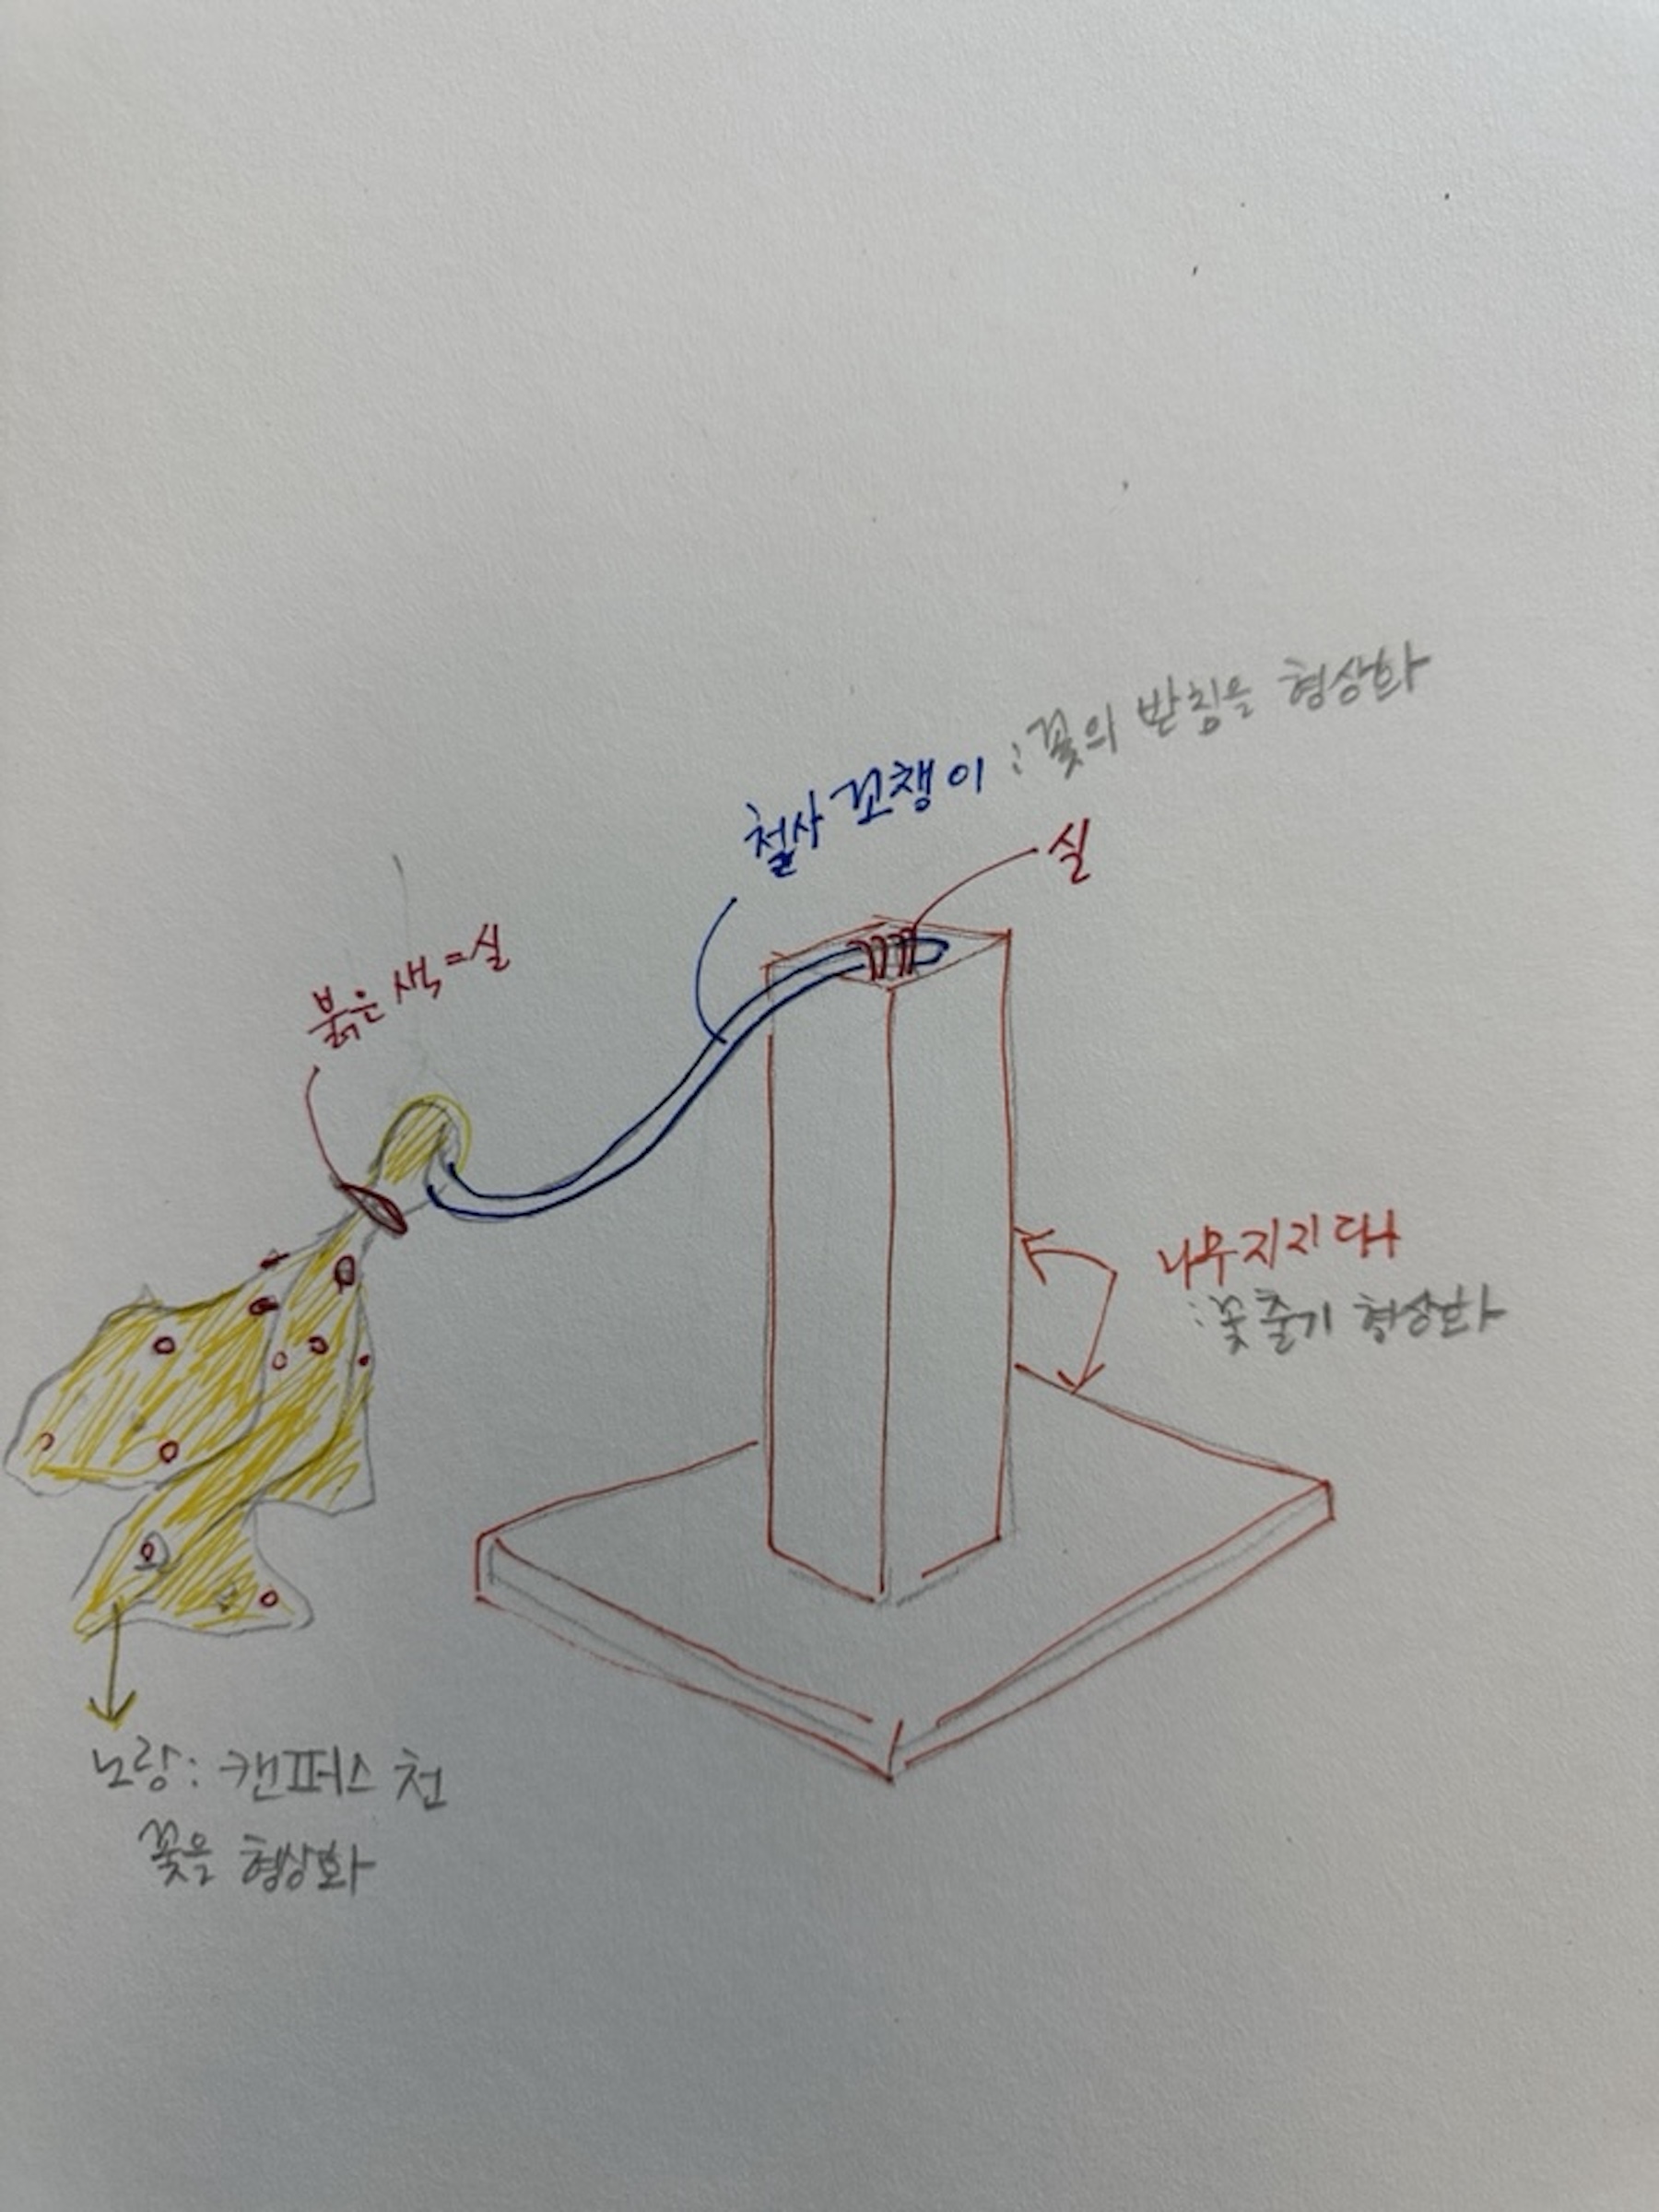 철사 꼬챙이 : 꽃의 받침을 형상화
실
붉은 색 = 실
나무지지대
: 꽃 줄기 형상화
노랑 : 캔퍼스 천
꽃을 형상화